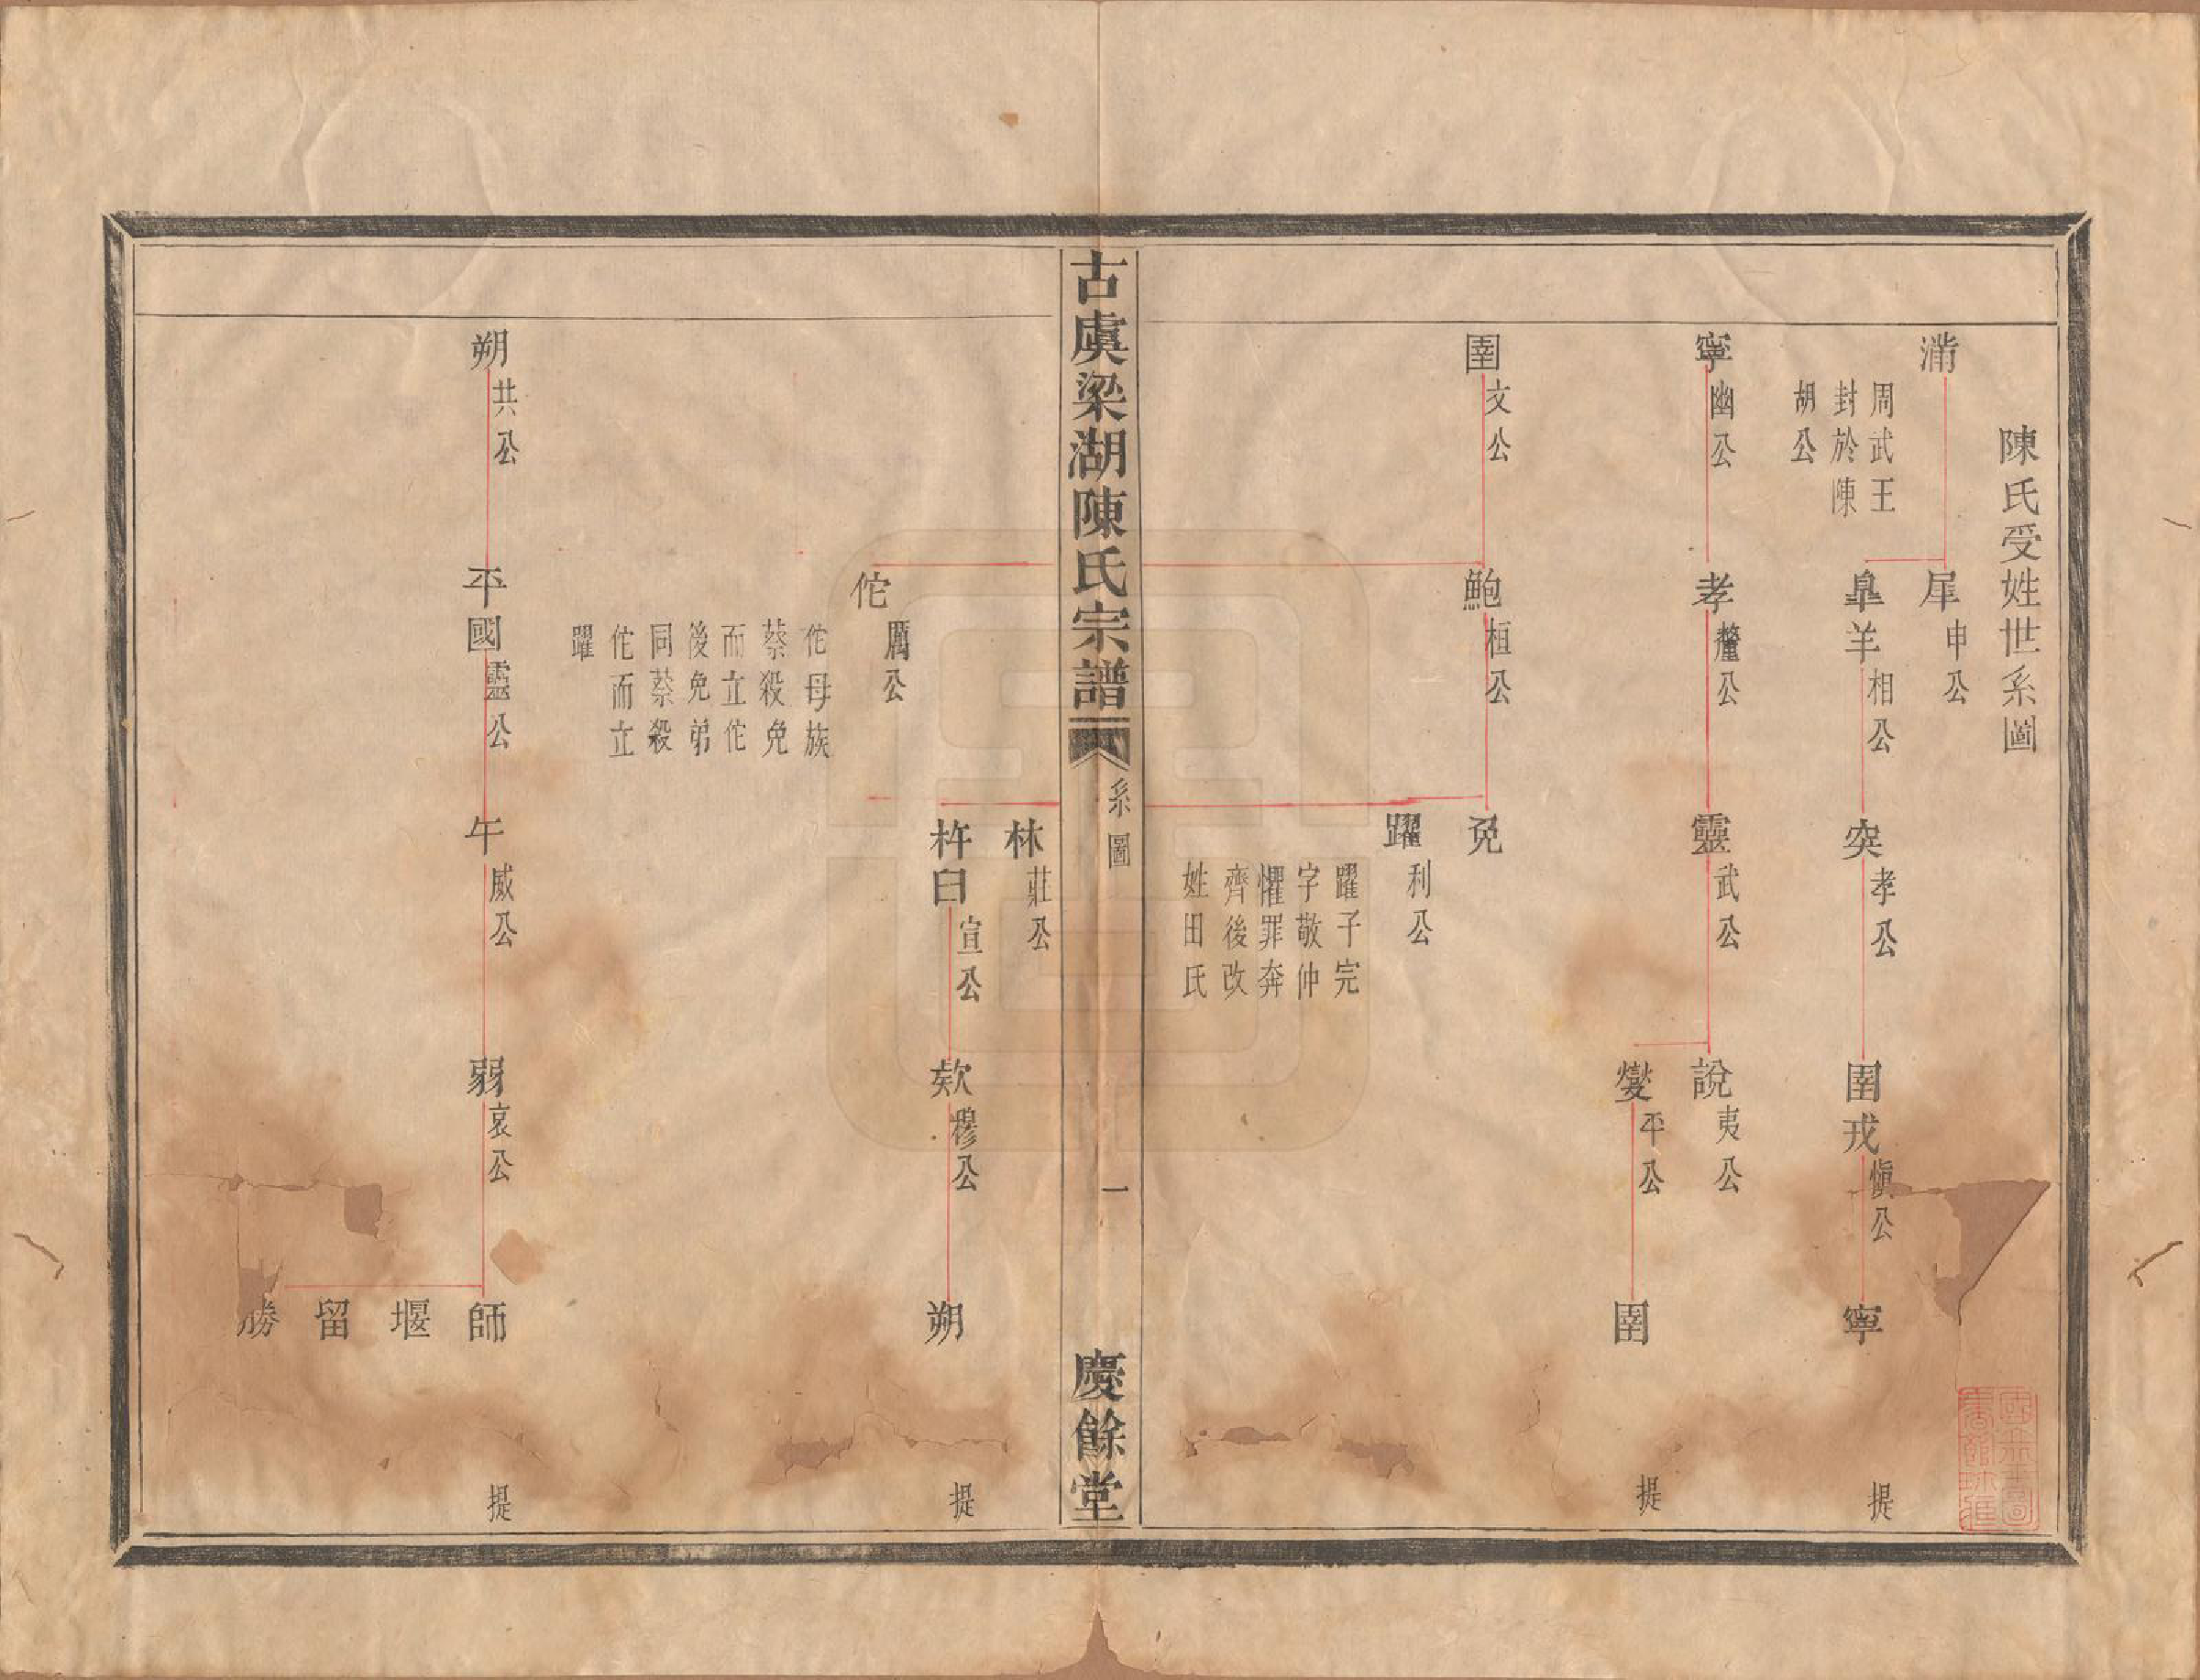 陳氏受姓世系圖
滿
周武王
封於陳
胡公
犀
申公
皐羊
相公
突
孝公
圉戎
慎公
寧
提
寧
幽公
孝
釐公
靈
武公
說
夷公
燮
平公
圉
提
圉
文公
鮑
桓公
免
躍
利公
躍子完
字敬仲
懼罪奔
齊後改
姓田氏
古虞梁湖陳氏宗譜
系圖
一
慶餘堂
林
莊公
杵臼
宣公
欵
穆公
朔
提
佗
厲公
佗母族
蔡殺免
而立佗
後免弟
同蔡殺
佗而立
躍
朔
共公
平國
靈公
午
成公
弱
哀公
師
堰
留
勝
提